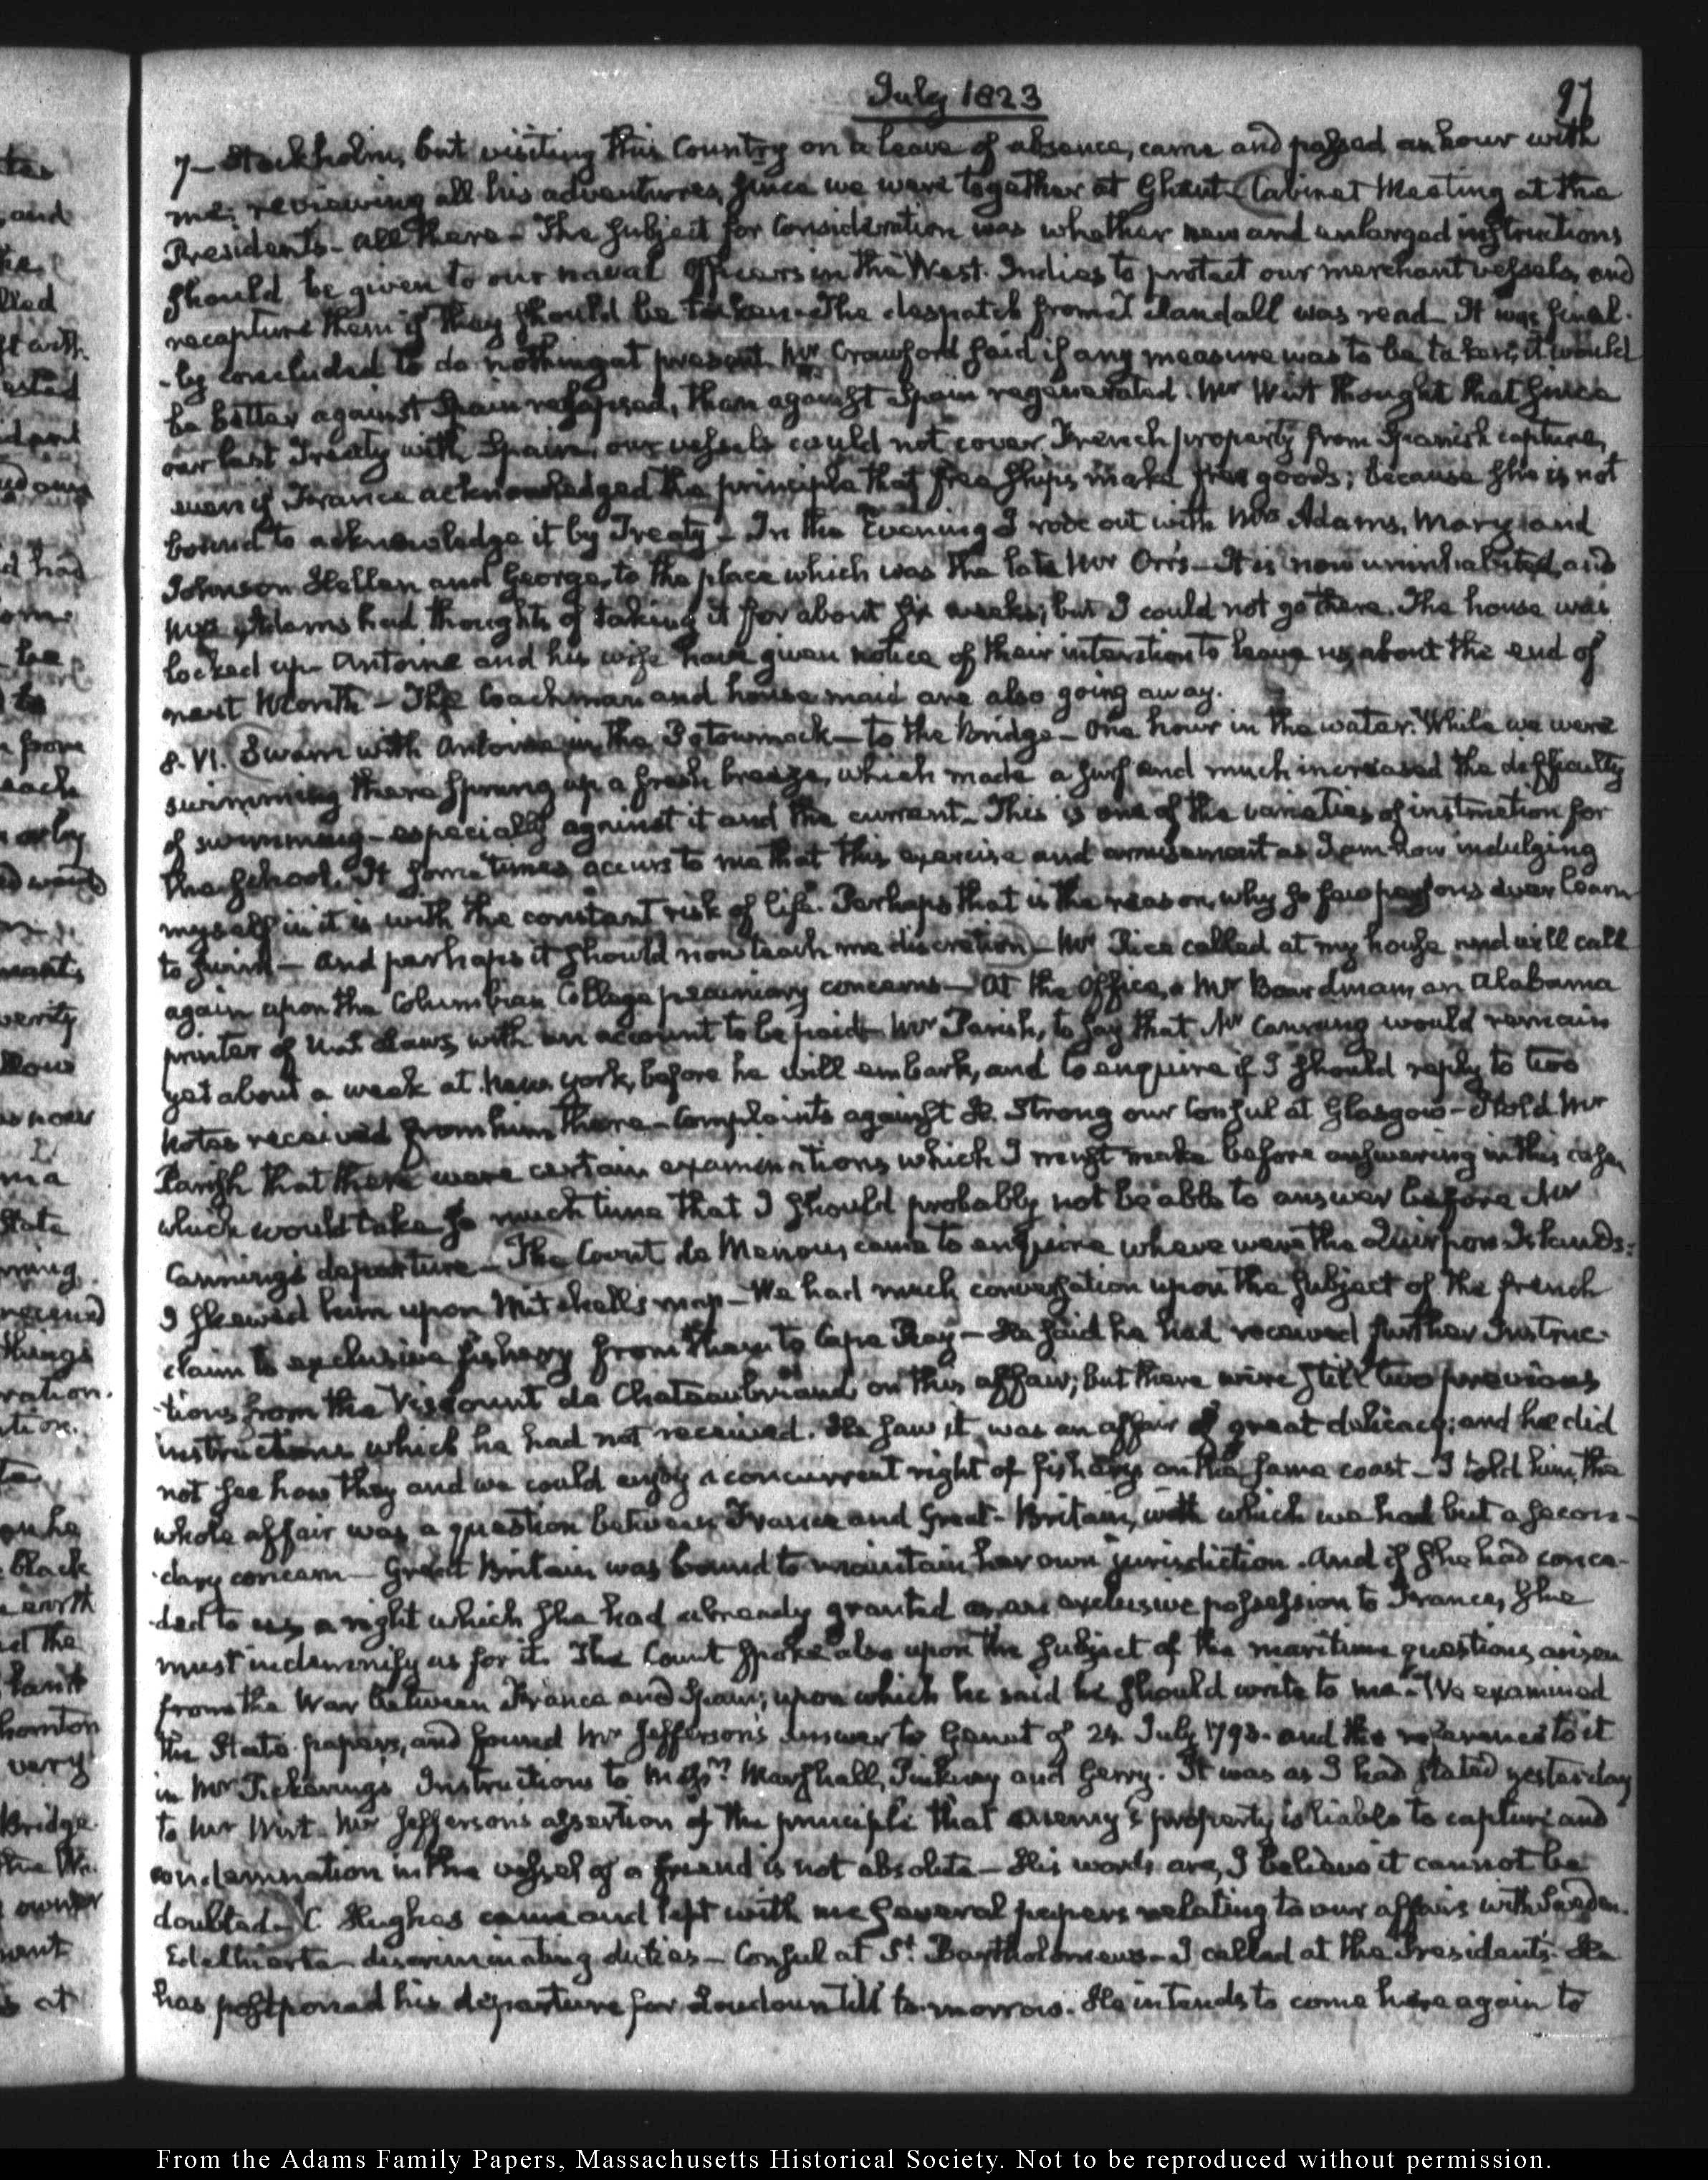 July 1823
97
7 - Stockholm, but visiting this Country on a leave of absence, came and passed an hour with
me; reviewing all his adventures, since we were together at Ghent - Cabinet Meeting at the
Presidents - all there - The subject for consideration was whether new and enlarged instructions
should be given to our naval Officers in the West-Indies to protect our merchant vessels, and
recapture them if they should be taken - The despatch from T Randall was read - It was final-
-ly concluded to do nothing at present. Mr Crawford said if any measure was to be taken, it would
be better against Spain relapsed, than against Spain regenerated. Mr Wirt thought that since
our last Treaty with Spain, our vessels could not cover French property from Spanish capture,
even if France acknowledged the principle that free ships make free goods; because she is not
bound to acknowledge it by Treaty - In the Evening I rode out with Mrs Adams, Mary and
Johnson Hellen and George, to the place which was the late Mr Orr's - It is now uninhabited, and
Mrs Adams had thoughts of taking it for about six weeks; but I could not go there. The house was
locked up - Antoine and his wife have given notice of their intention to leave us about the end of
next Month - The Coachman and house maid are also going away.
8. VI. Swam with Antoine in the Potowmack - to the Bridge - One hour in the water. While we were
swimming there sprung up a fresh breeze, which made a surf and much increased the difficulty
of swimming - especially against it and the current - This is one of the varieties of instruction for
the school. It sometimes occurs to me that this exercise and amusement as I am now indulging
myself in it is with the constant risk of life. Perhaps that is the reason, why so few persons ever learn
to swim - and perhaps it should now teach me discretion - Mr Rice called at my house and will call
again upon the Columbian College pecuniary concerns - At the Office, a Mr Boardman, an Alabama
printer of the Laws, with an account to be paid - Mr Parish, to say that Mr Canning would remain
yet about a week at New-York, before he will embark, and to enquire if I should reply to two
Notes received from him there - Complaints against H. Strong our Consul at Glasgow - I told Mr
Parish that there were certain examinations which I must make before answering in this case,
which would take so much time that I should probably not be able to answer before Mr
Canning's departure - The Count de Menou came to enquire where were the Quirpon Islands:
I shewed him upon Mitchell's map - We had much conversation upon the subject of the french
claim to exclusive fishery from them to Cape Ray - He said he had received further Instruc-
-tions from the Viscount de Chateaubriand on this affair; but there were still two previous
instructions which he had not received. He saw it was an affair of great delicacy; and he did
not see how they and we could enjoy a concurrent right of fishery on the same coast - I told him, the
whole affair was a question between France and Great-Britain, with which we had but a secon-
-dary concern - Great Britain was bound to maintain her own jurisdiction. And if she had conce-
-ded to us a right which she had already granted as an exclusive possession to France, she
must indemnify us for it. The Count spoke also upon the subject of the maritime questions, arisen
from the War between France and Spain; upon which he said he should write to me - We examined
the State papers, and found Mr Jefferson's answer to Genet of 24 July 1793. and the reference to it
in Mr Pickering's Instructions to Messrs Marshall, Pinkney and Gerry. It was as I had stated yesterday
to Mr Wirt. Mr Jefferson's assertion of the principle that enemy's property is liable to capture and
condemnation in the vessel of a friend is not absolute - His words are, I believe it cannot be
doubted - C Hughes came and left with me several papers relating to our affairs with Sweden.
discriminating duties - Consul at St Bartholomews - I called at the Presidents. He
has postponed his departure for Loudoun till to-morrow. He intends to come here again to
From the Adams Family Papers, Massachusetts Historical Society. Not to be reproduced without permission.